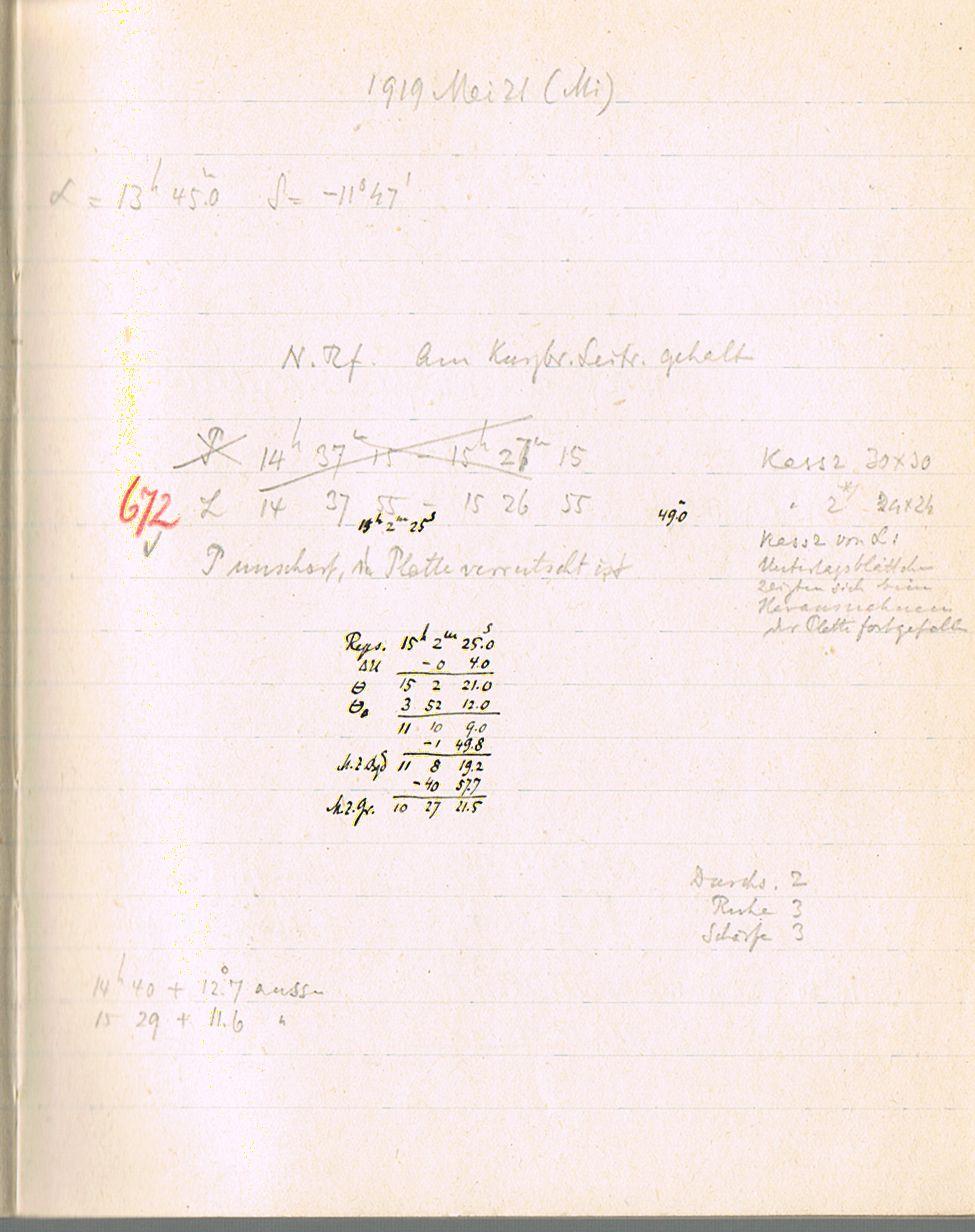 1919 Mai 21 (Mi)
α = 13ʰ 45ᵐ.0 δ = -11°47'
N. Rf. Am
gehalt
P 14ʰ 37ᵐ 15 - 15ʰ 27ᵐ 15
672 L 14 37 55 - 15 26 55
15ʰ 2ᵐ 25ˢ
49ᵐ.0
P unscharf, da Platte verrutscht ist
Kass 2 30x30
" 2*) 24x24
Kass 2 von L:
Unterlagsblättch
zeigten sich beim
Herausnehmen
der Platte fortgefallen
Regs. 15ʰ 2ᵐ 25ˢ.0
ΔU -0 4.0
θ 15 2 21.0
θ₀ 3 52 12.0
11 10 9.0
-1 49.8
M.Z.Bgd 11 8 19.2
-40 57.7
M.Z.Gr. 10 27 21.5
Durchs. 2
Ruhe 3
Schärfe 3
14ʰ 40 + 12°.7 aussen
15 29 + 11.6 "